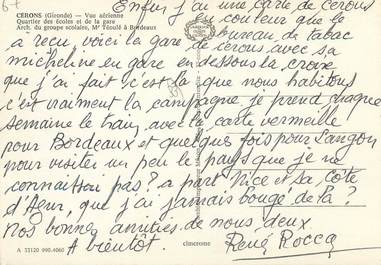 67
CÉRONS (Gironde) — Vue aérienne
Quartier des écoles et de la gare
Arch. du groupe scolaire, Mr Téoulé à Bordeaux
Enfin j'ai une carte de cérons
en couleur que le
bureau de tabac
a reçu, voici la gare de cérons avec sa
micheline en gare en dessous la croix
que j'ai fait c'est la que nous habitons
c'est vraiment la campagne je prend chaque
semaine le train avec la carte vermeille
pour Bordeaux et quelques fois pour Langon
pour visiter un peu le pays que je ne
connassai pas? a part Nice et sa Côte
d'Azur, que j'ai jamais bougé de là?
Nos bonnes amitiés de nous deux
A bientôt.
René Rocca
A 33120 990.4060
cimcrome